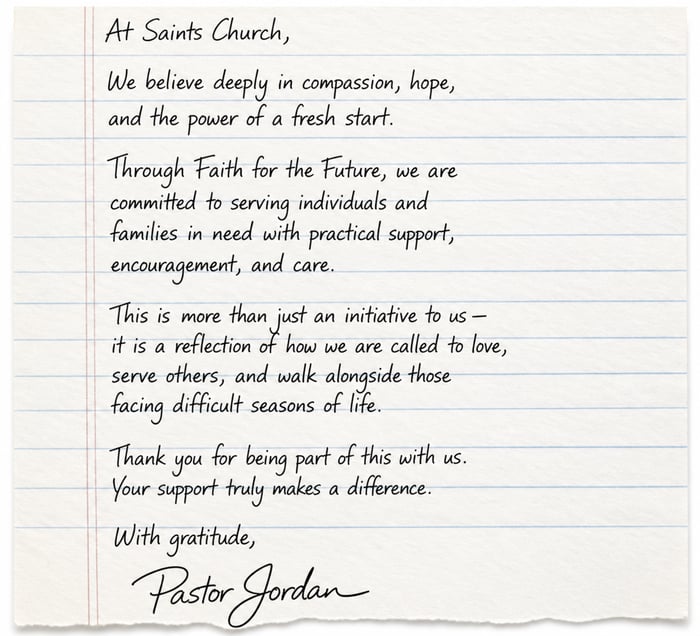 At Saints Church,
We believe deeply in compassion, hope,
and the power of a fresh start.
Through Faith for the Future, we are
committed to serving individuals and
families in need with practical support,
encouragement, and care.
This is more than just an initiative to us —
it is a reflection of how we are called to love,
serve others, and walk alongside those
facing difficult seasons of life.
Thank you for being part of this with us.
Your support truly makes a difference.
With gratitude,
Pastor Jordan